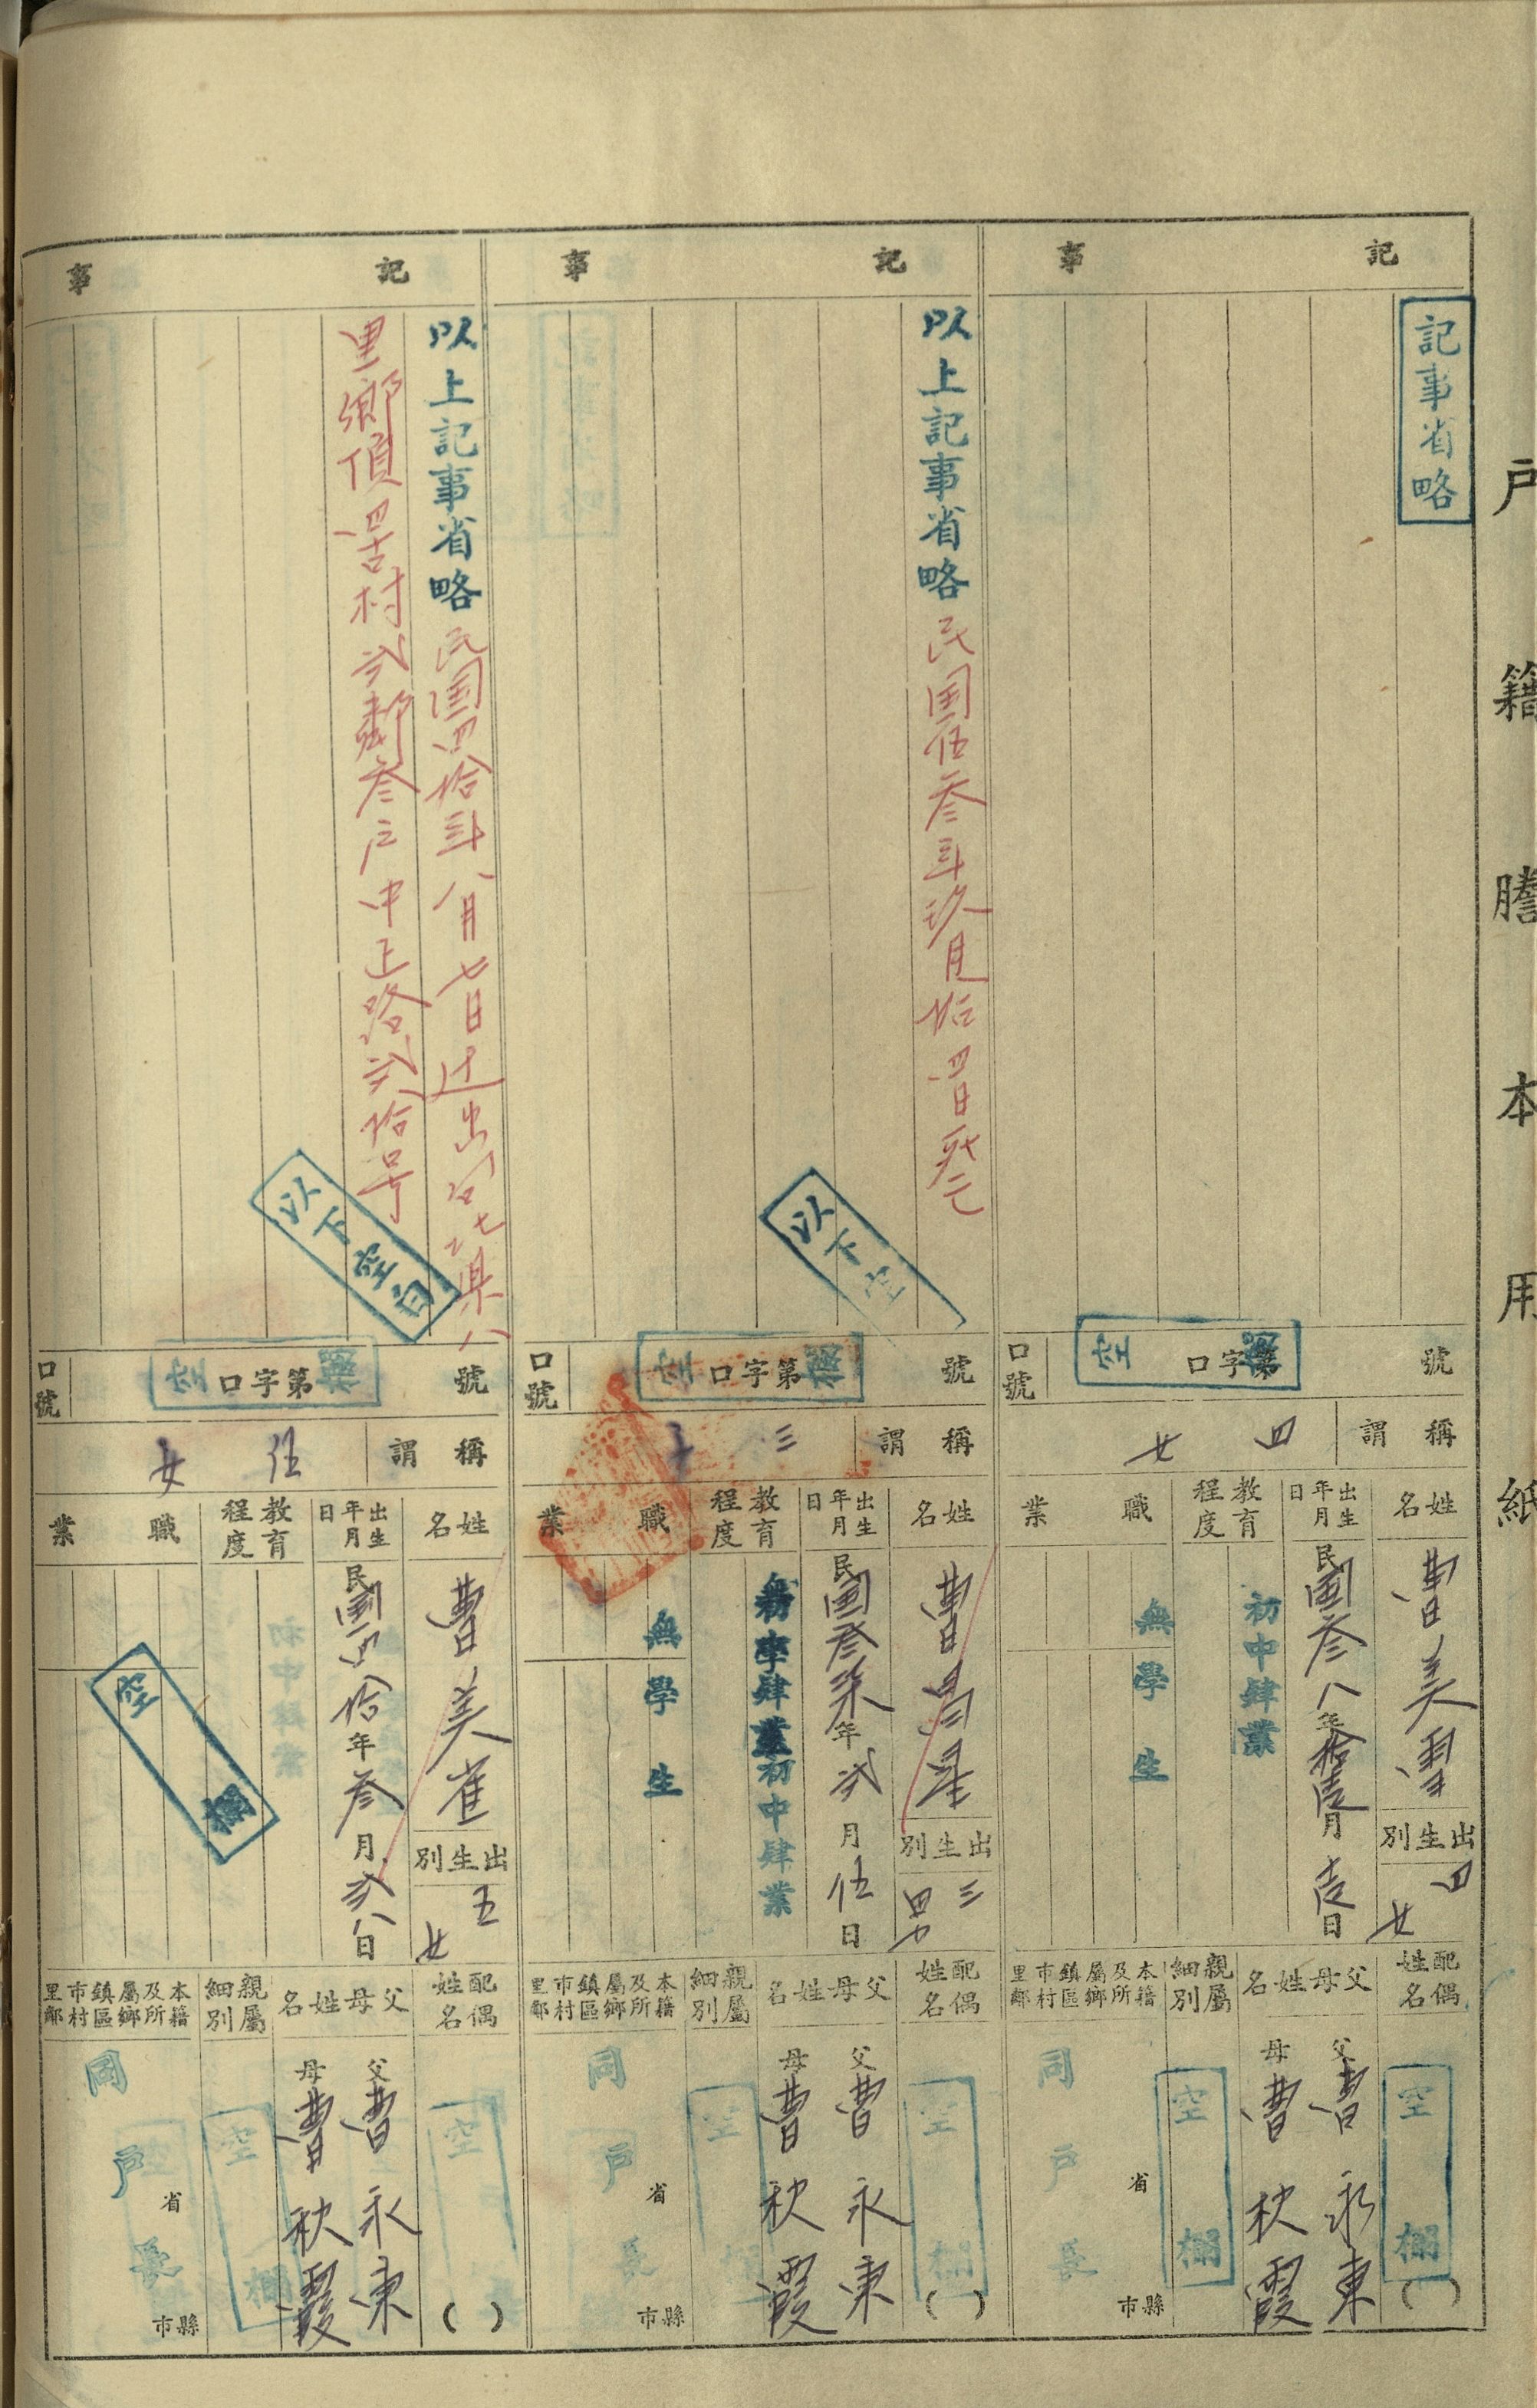 戶籍謄本用紙
記事
記事省略
口號
第字口號
空欄
稱謂
四女
姓名
曹美雲
出生別
四女
出生年月日
民國參八年拾壹月壹日
教育程度
初中肄業
職業
無
學生
配偶姓名
空欄
( )
父母姓名
父 曹永東
母 曹秋霞
親屬細別
空欄
本籍及所屬鄉鎮區市村里鄰
同戶長
省
縣市
記事
以上記事省略民国伍參年玖月拾四日
以下空
口號
第字口號
空欄
稱謂
三子
姓名
曹昌星
出生別
三男
出生年月日
民國參柒年弍月伍日
教育程度
初中肄業
職業
無
學生
配偶姓名
空欄
( )
父母姓名
父 曹永東
母 曹秋霞
親屬細別
空欄
本籍及所屬鄉鎮區市村里鄰
同戶長
省
縣市
記事
以上記事省略民國四拾年八月七日迁出
里鄉頂村弍鄰參戶中正路弍拾号
以下空白
口號
第字口號
空欄
稱謂
伍女
姓名
曹美雀
出生別
五女
出生年月日
民國四拾年參月弍八日
教育程度
職業
空欄
配偶姓名
空
( )
父母姓名
父 曹永東
母 曹秋霞
親屬細別
空欄
本籍及所屬鄉鎮區市村里鄰
同戶長
省
縣市